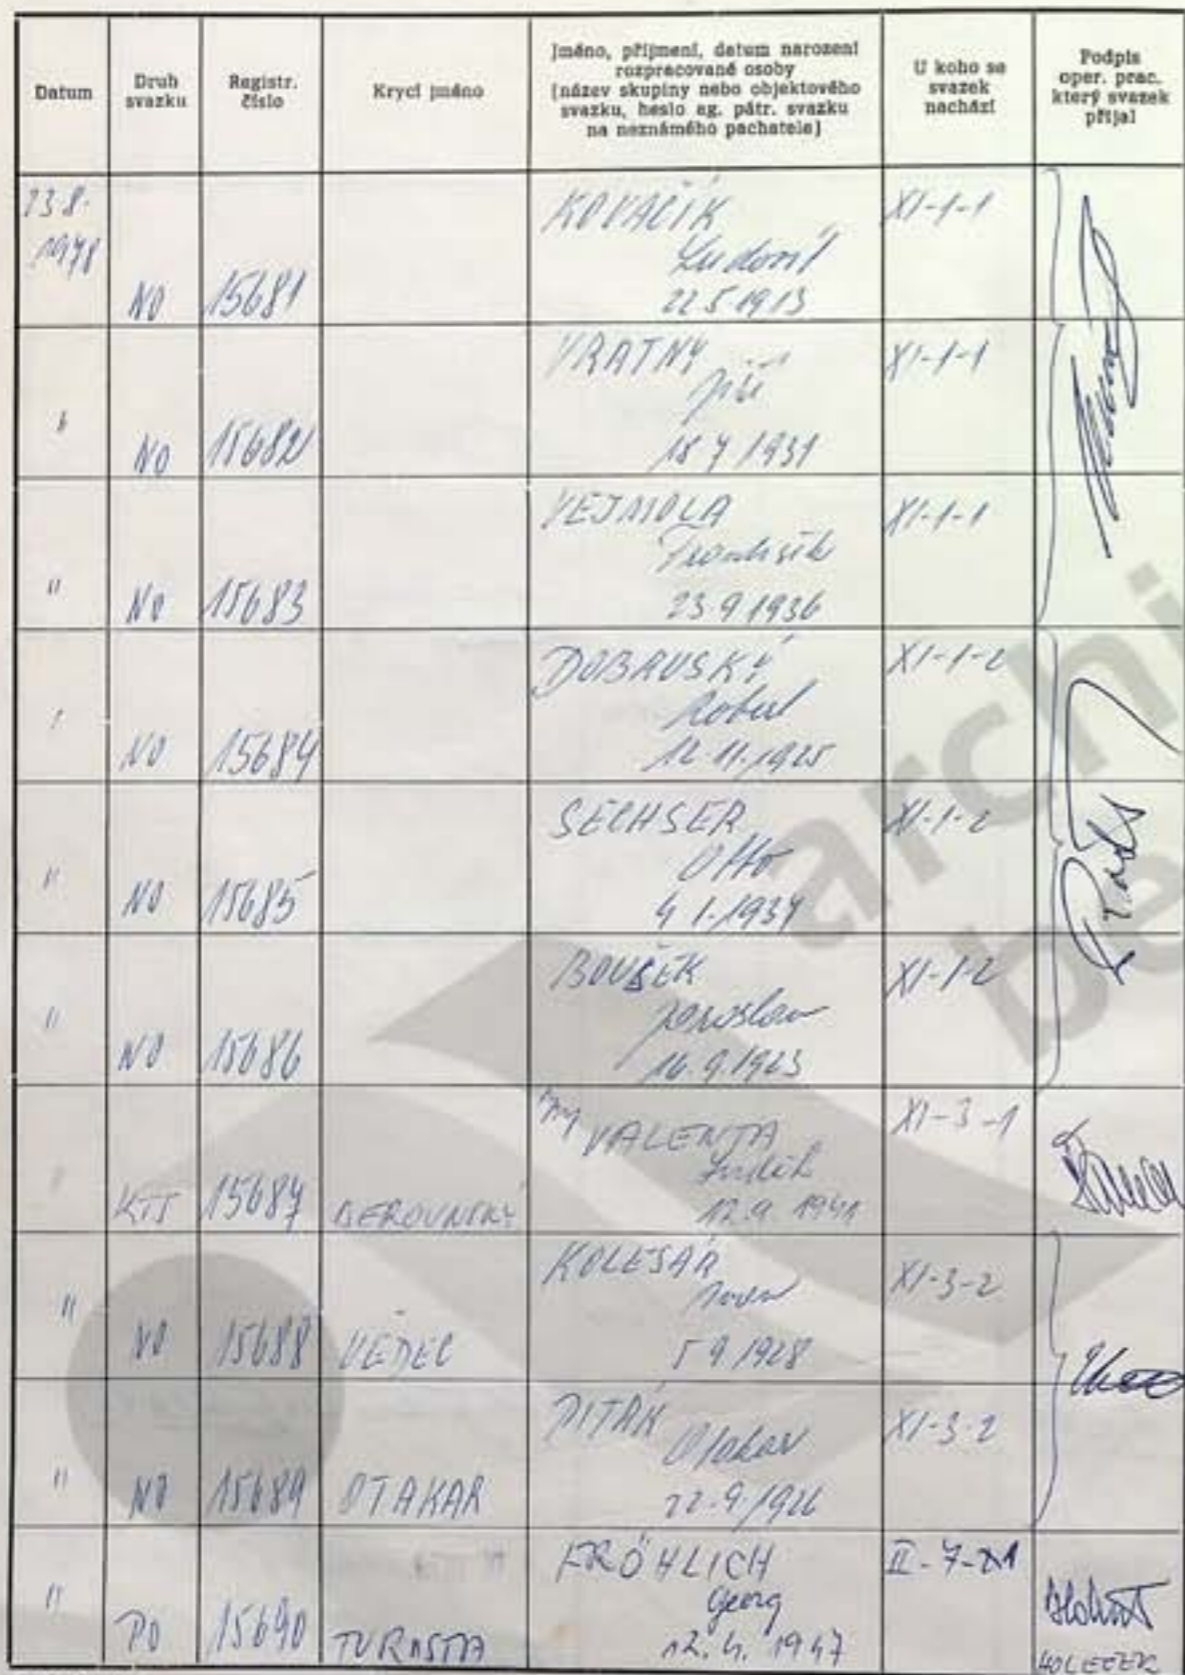 Datum
Druh
svazku
Registr.
číslo
Krycí jméno
Jméno, příjmení, datum narození
rozpracované osoby
(název skupiny nebo objektového
svazku, heslo ag. pátr. svazku
na neznámého pachatele)
U koho se
svazek
nachází
Podpis
oper. prac.
který svazek
přijal
23.8.
1978
NO
15681
KOVAČÍK
Ludovít
22.5.1913
XI-1-1
"
NO
15682
VRATNÝ
Jiří
18 7 1931
XI-1-1
"
NO
15683
VEJMOLA
František
23 9 1936
XI-1-1
"
NO
15684
DOBRUSKÝ
Robert
12.11.1925
XI-1-2
"
NO
15685
SECHSER
Otto
4 1.1934
XI-1-2
"
NO
15686
BOUŠEK
Jaroslav
16.9.1923
XI-1-2
"
KTS
15687
BEROUNSKÝ
VALENTA
Luděk
12.9. 1941
XI-3-1
"
NO
15688
VĚDEC
KOLESÁR
5 9 1928
XI-3-2
"
NO
15689
OTAKAR
PITÁK
Otakar
22.9.1926
XI-3-2
"
PO
15690
TURISTA
FRÖHLICH
Georg
12.4. 1947
II-7-1
archi
be